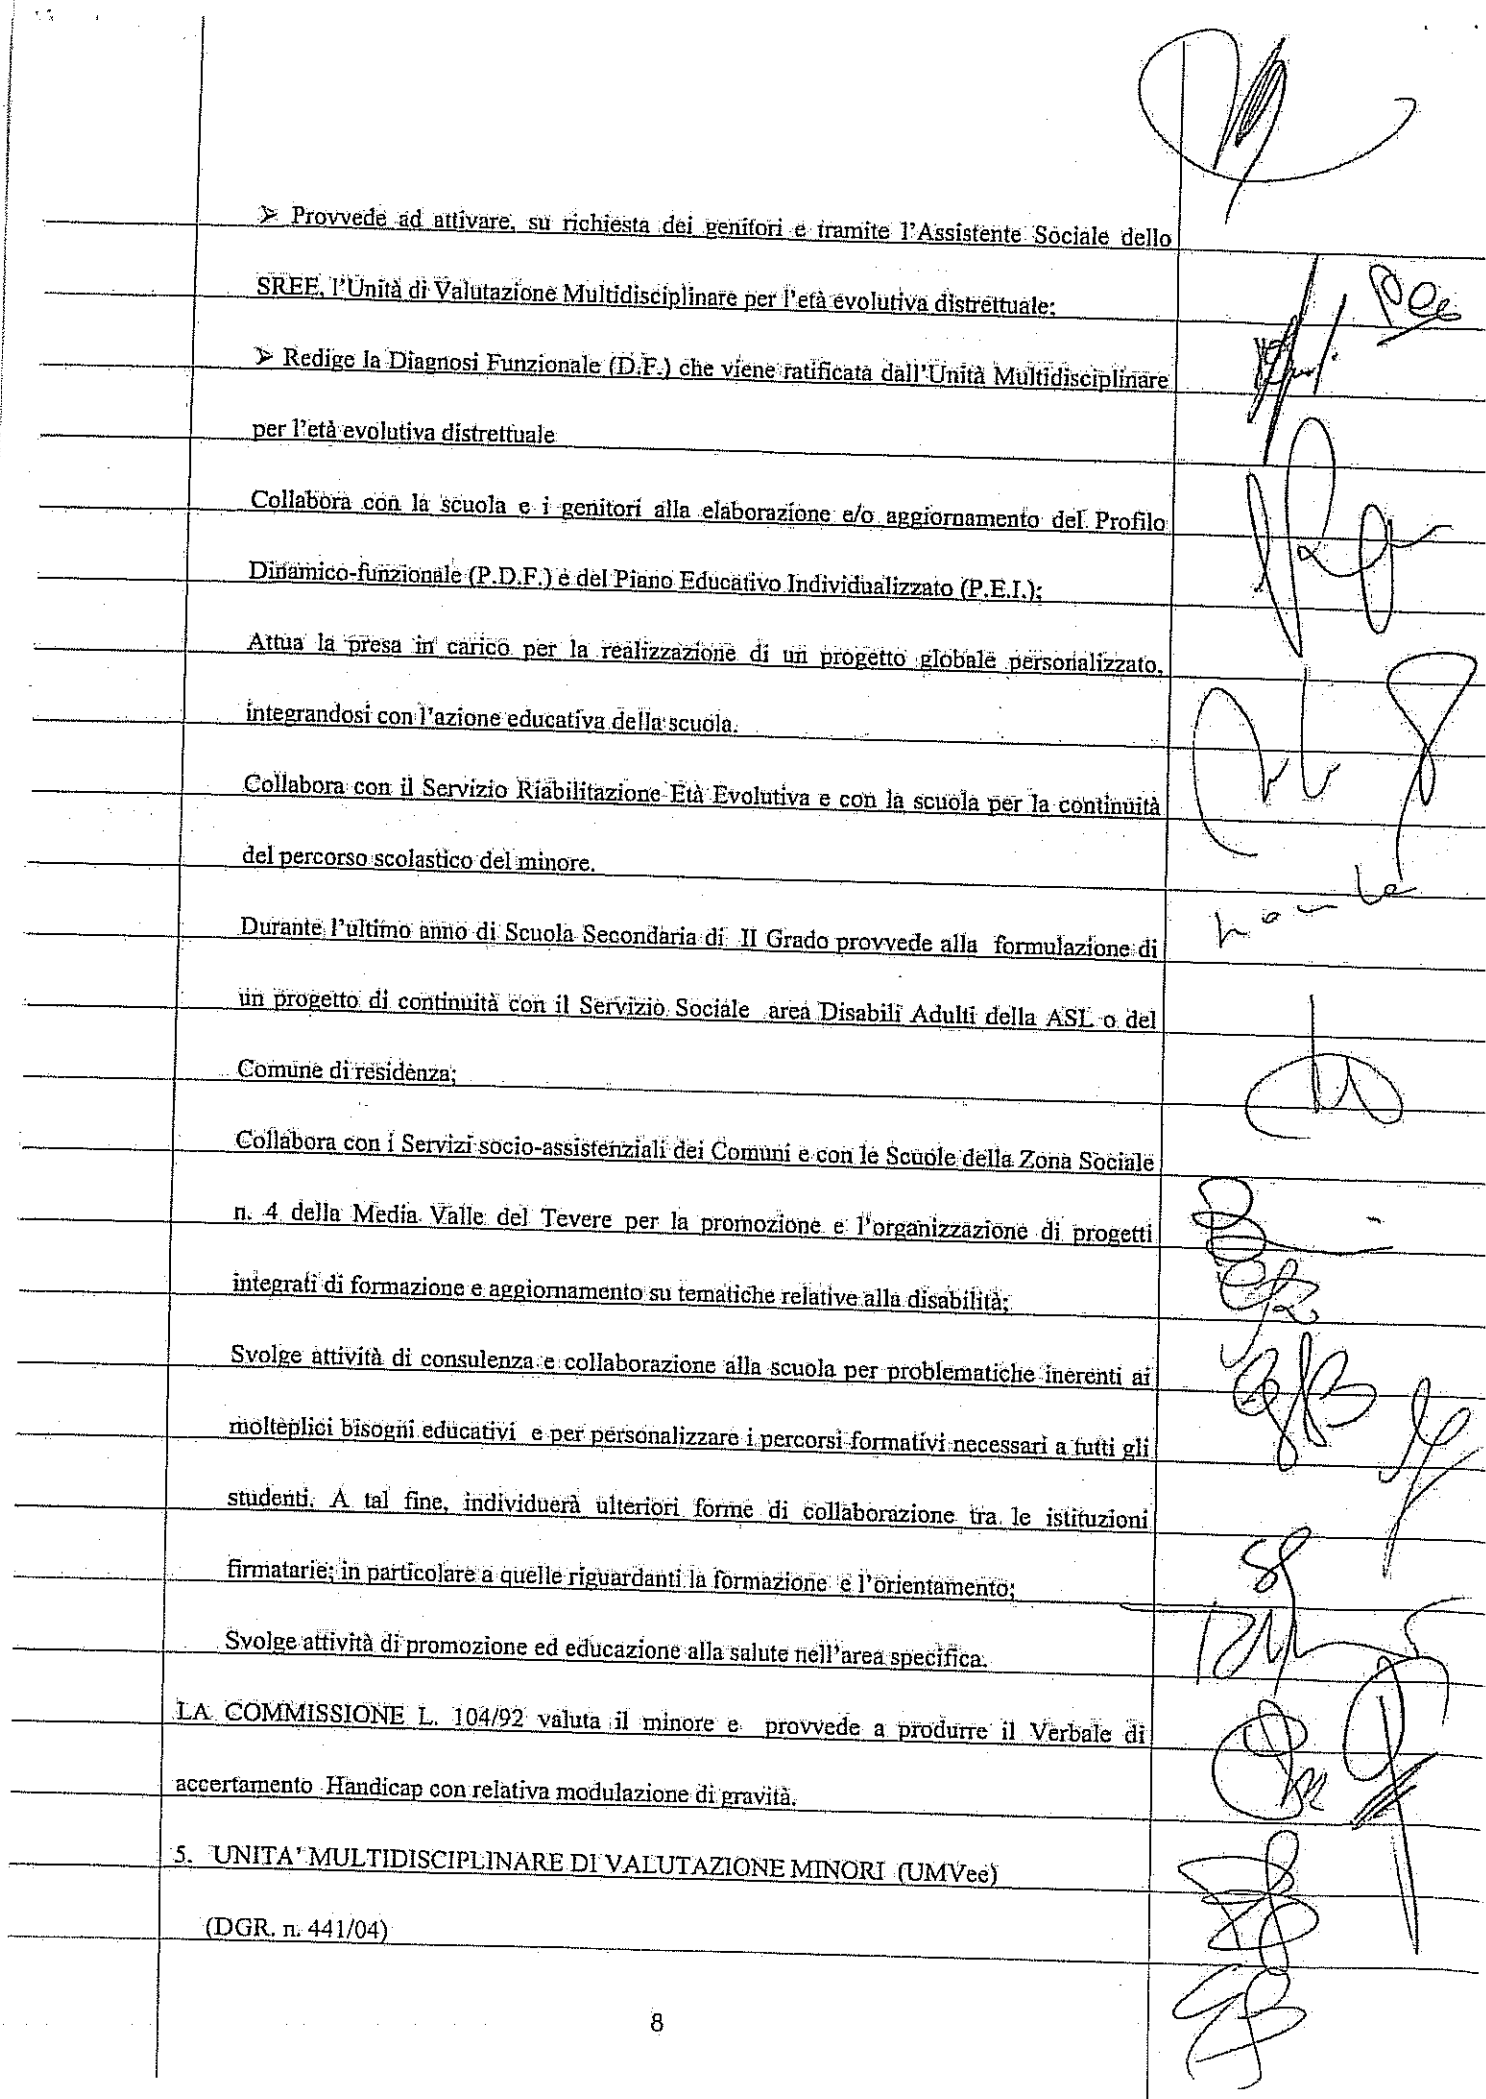 ➢ Provvede ad attivare, su richiesta dei genitori e tramite l'Assistente Sociale dello
SREE, l'Unità di Valutazione Multidisciplinare per l'età evolutiva distrettuale;
➢ Redige la Diagnosi Funzionale (D.F.) che viene ratificata dall'Unità Multidisciplinare
per l'età evolutiva distrettuale
Collabora con la scuola e i genitori alla elaborazione e/o aggiornamento del Profilo
Dinamico-funzionale (P.D.F.) e del Piano Educativo Individualizzato (P.E.I.);
Attua la presa in carico per la realizzazione di un progetto globale personalizzato,
integrandosi con l'azione educativa della scuola.
Collabora con il Servizio Riabilitazione Età Evolutiva e con la scuola per la continuità
del percorso scolastico del minore.
Durante l'ultimo anno di Scuola Secondaria di II Grado provvede alla formulazione di
un progetto di continuità con il Servizio Sociale area Disabili Adulti della ASL o del
Comune di residenza;
Collabora con i Servizi socio-assistenziali dei Comuni e con le Scuole della Zona Sociale
n. 4 della Media Valle del Tevere per la promozione e l'organizzazione di progetti
integrati di formazione e aggiornamento su tematiche relative alla disabilità;
Svolge attività di consulenza e collaborazione alla scuola per problematiche inerenti ai
molteplici bisogni educativi e per personalizzare i percorsi formativi necessari a tutti gli
studenti. A tal fine, individuerà ulteriori forme di collaborazione tra le istituzioni
firmatarie; in particolare a quelle riguardanti la formazione e l'orientamento;
Svolge attività di promozione ed educazione alla salute nell'area specifica.
LA COMMISSIONE L. 104/92 valuta il minore e provvede a produrre il Verbale di
accertamento Handicap con relativa modulazione di gravità.
5. UNITA' MULTIDISCIPLINARE DI VALUTAZIONE MINORI (UMVee)
(DGR. n. 441/04)
8